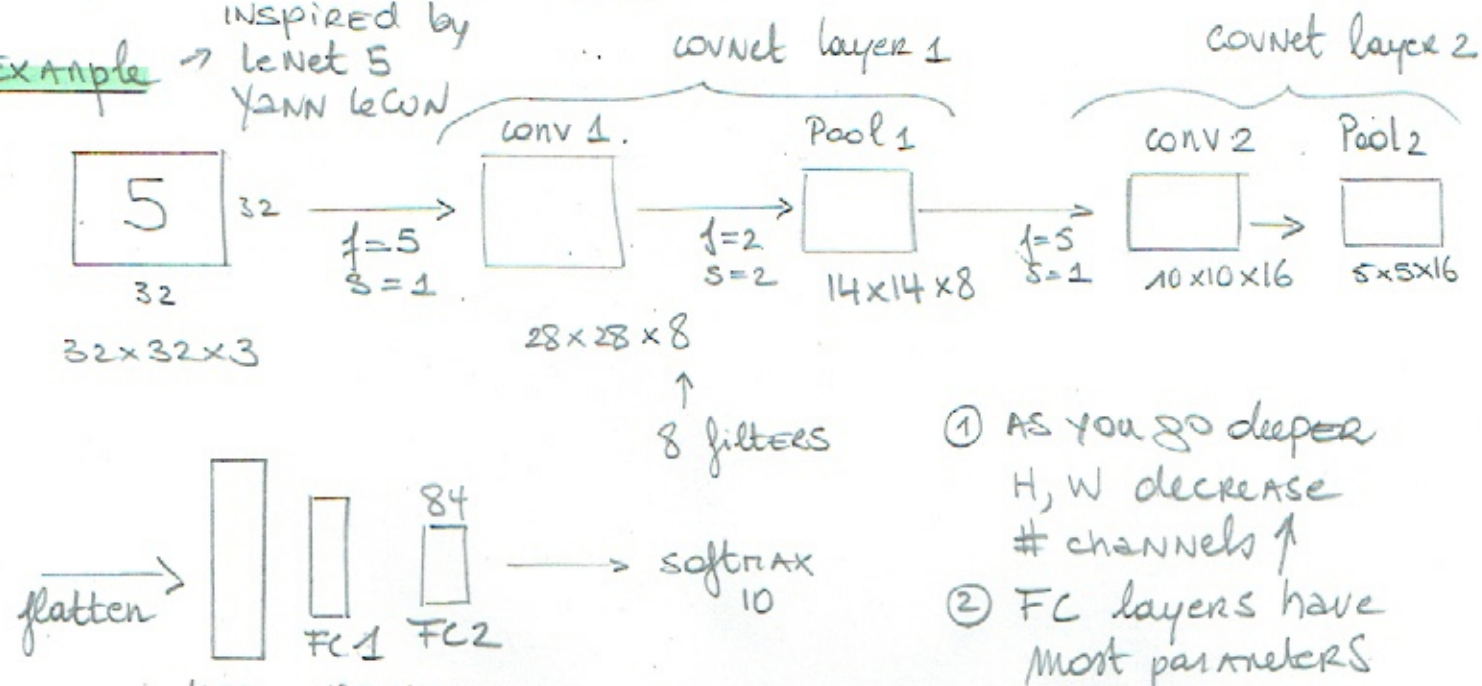 Example → INSPIRED by
LeNet 5
YANN LeCUN
covNet layer 1
covNet layer 2
conv 1.
Pool 1
conv 2
Pool 2
5
32
32
32×32×3
f=5
s=1
28×28×8
↑
8 filters
f=2
s=2
14×14×8
f=5
s=1
10×10×16
5×5×16
flatten
FC1
84
FC2
softmax
10
① As you go deeper
H, W decrease
# channels ↑
② FC layers have
most parameters